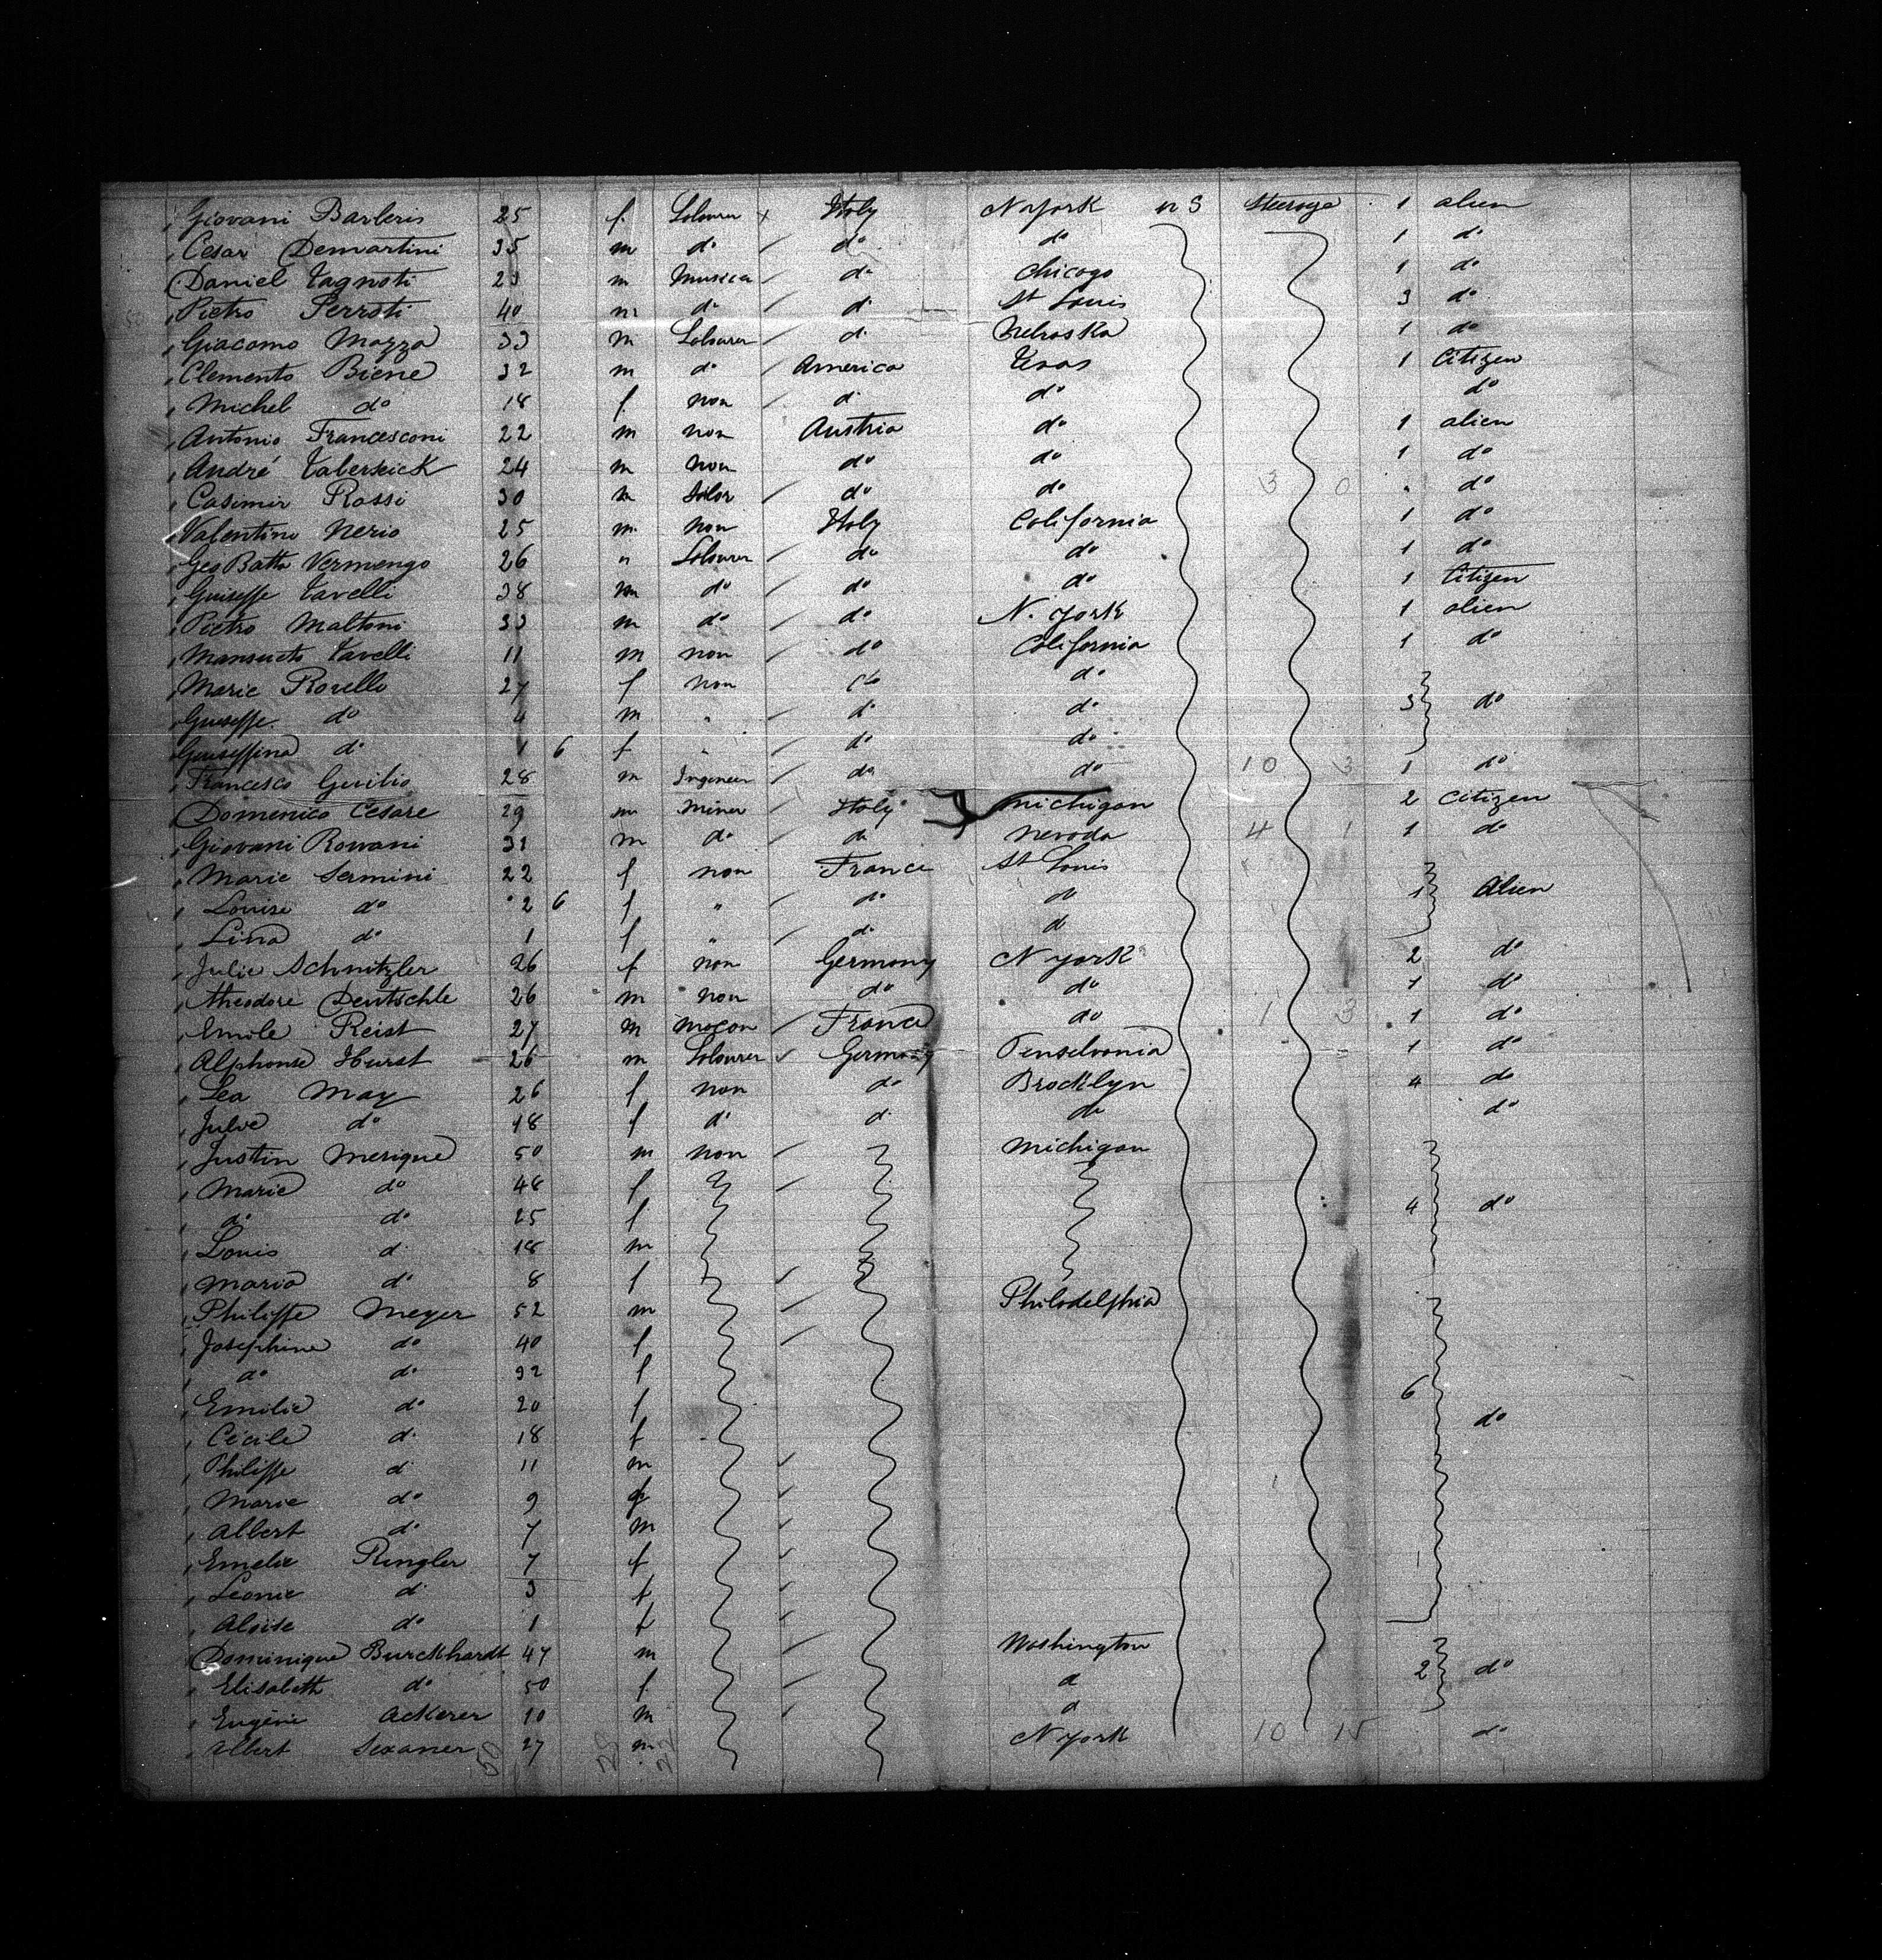 Giovani Barberis 25 f. Labourer x Italy N York n 3 Steerage 1 alien
Cesar Demartini 35 m do do do 1 do
Daniel Tagnoti 23 m do Chicago 1 do
Pietro Perroti 40 m do d St Louis 3 do
Giacomo Mazza 33 m Labourer d Nebraska 1 do
Clemento Biene 32 m do America Texas 1 Citizen
Michel do 18 f non d do do
Antonio Francesconi 22 m non Austria do 1 alien
André Taberkick 24 m non do do 1 do
Casimir Rossi 30 m do do 3 0 " do
Valentino Nerio 25 m non Italy California 1 do
Geo Batta Vermengo 26 " Labourer do do 1 do
Guiseffe Tavelli 38 m do do do 1 Citizen
Pietro Maltoni 33 m do do N. York 1 alien
Mansueto Tavelli 11 m non do California 1 do
Marie Rovello 27 f non do do
Guiseffe do 4 m " do do 3 do
Guiseffina do 1 6 f " do do
Francesco Guilio 28 m Ingineer do do 10 3 1 do
Domenico Cesare 29 m Miner Italy Michigan 2 Citizen
Giovani Rovani 31 m do do Nevada 4 1 1 do
Marie Sermini 22 f non France St Louis
Louise do 2 6 f " do do 1 Alien
Lina do 1 f " do d
Julie Schnitzler 26 f non Germany N York 2 do
Theodore Deutschle 26 m non do do 1 do
Emile Reist 27 m Maçon France do 1 3 1 do
Alphonse Hurst 26 m Labourer Germany Penselvania 1 do
Lea May 26 f non do Brocklyn 4 do
Julie do 18 f d d do do
Justin Merique 50 m non Michigan
Marie do 48 f
do do 25 f 4 do
Louis d 18 m
Maria do 8 f
Philiffe Meyer 52 m Philadelphia
Josephine do 40 f
do do 32 f
Emilie do 20 f 6 do
Cécile d 18 f
Philiffe d 11 m
Marie do 9 f
Albert do 7 m
Emelie Ringler 7 f
Leonie d 3 f
Aloise do 1 f
Dominique Burckhardt 47 m Washington
Elisabeth do 50 f d 2 do
Eugéne Ackerer 10 m d
Albert Sexaner 27 m N York 10 15 do
50